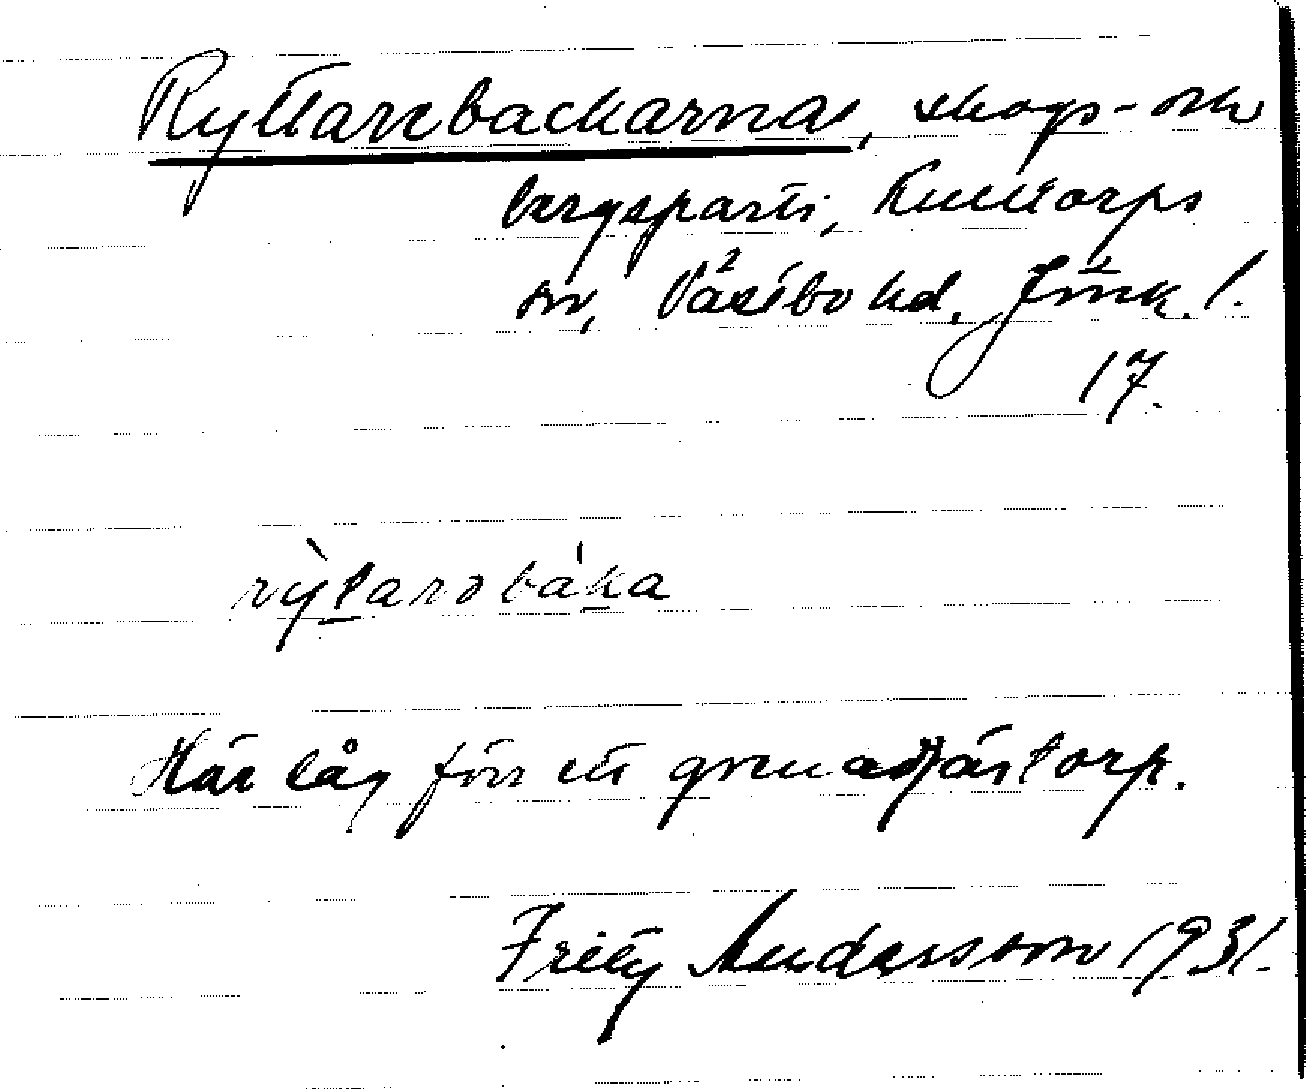 Ryttarebackarna, skogs- och
bergsparti, Kulltorps
sn, Västbo hd, Jönk. l.
17.
rỳtarə bàka
Här låg förr ett grenadjärstorp.
Fritz Andersson 1931.